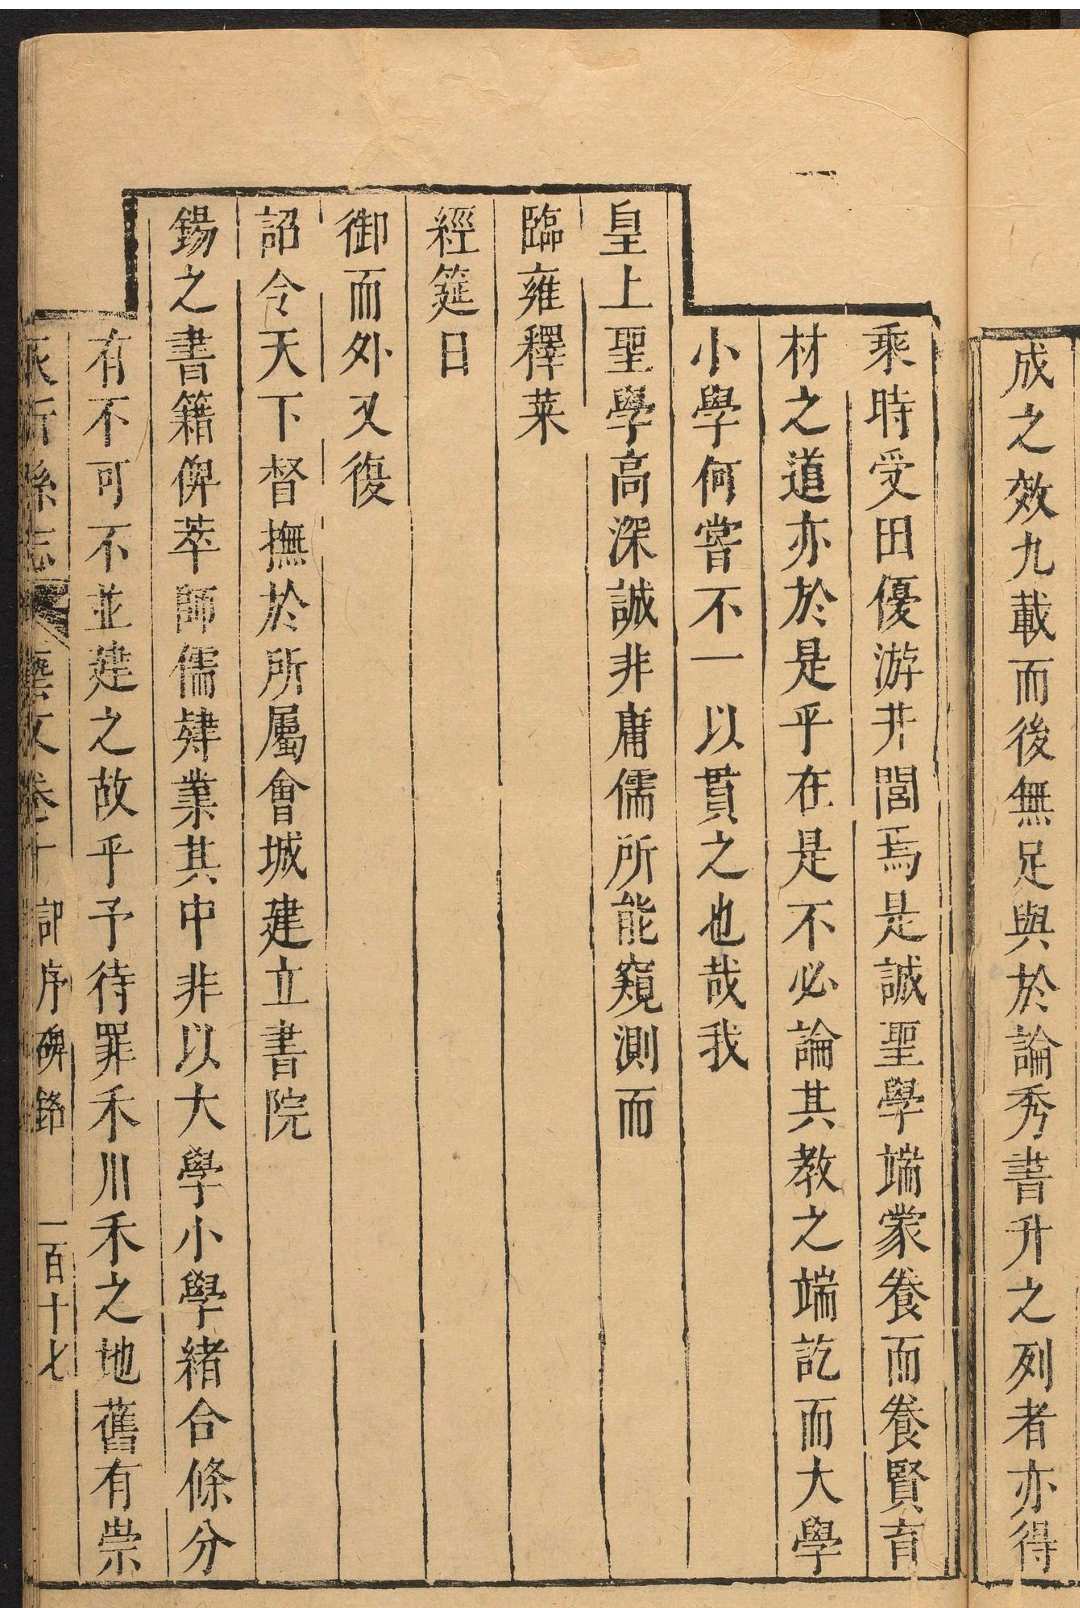 成之效九載而後無足與於論秀書升之列者亦得
乘時受田優游井閭焉是誠聖學端蒙養而養賢育
材之道亦於是乎在是不必論其教之端訖而大學
小學何嘗不一以貫之也哉我
皇上聖學高深誠非庸儒所能窺測而
臨雍釋菜
經筵日
御而外又復
詔令天下督撫於所屬會城建立書院
錫之書籍俾萃師儒肄業其中非以大學小學緒合條分
有不可不並建之故乎予待罪禾川禾之地舊有崇
縣志 藝文卷十 記序碑銘 一百十七